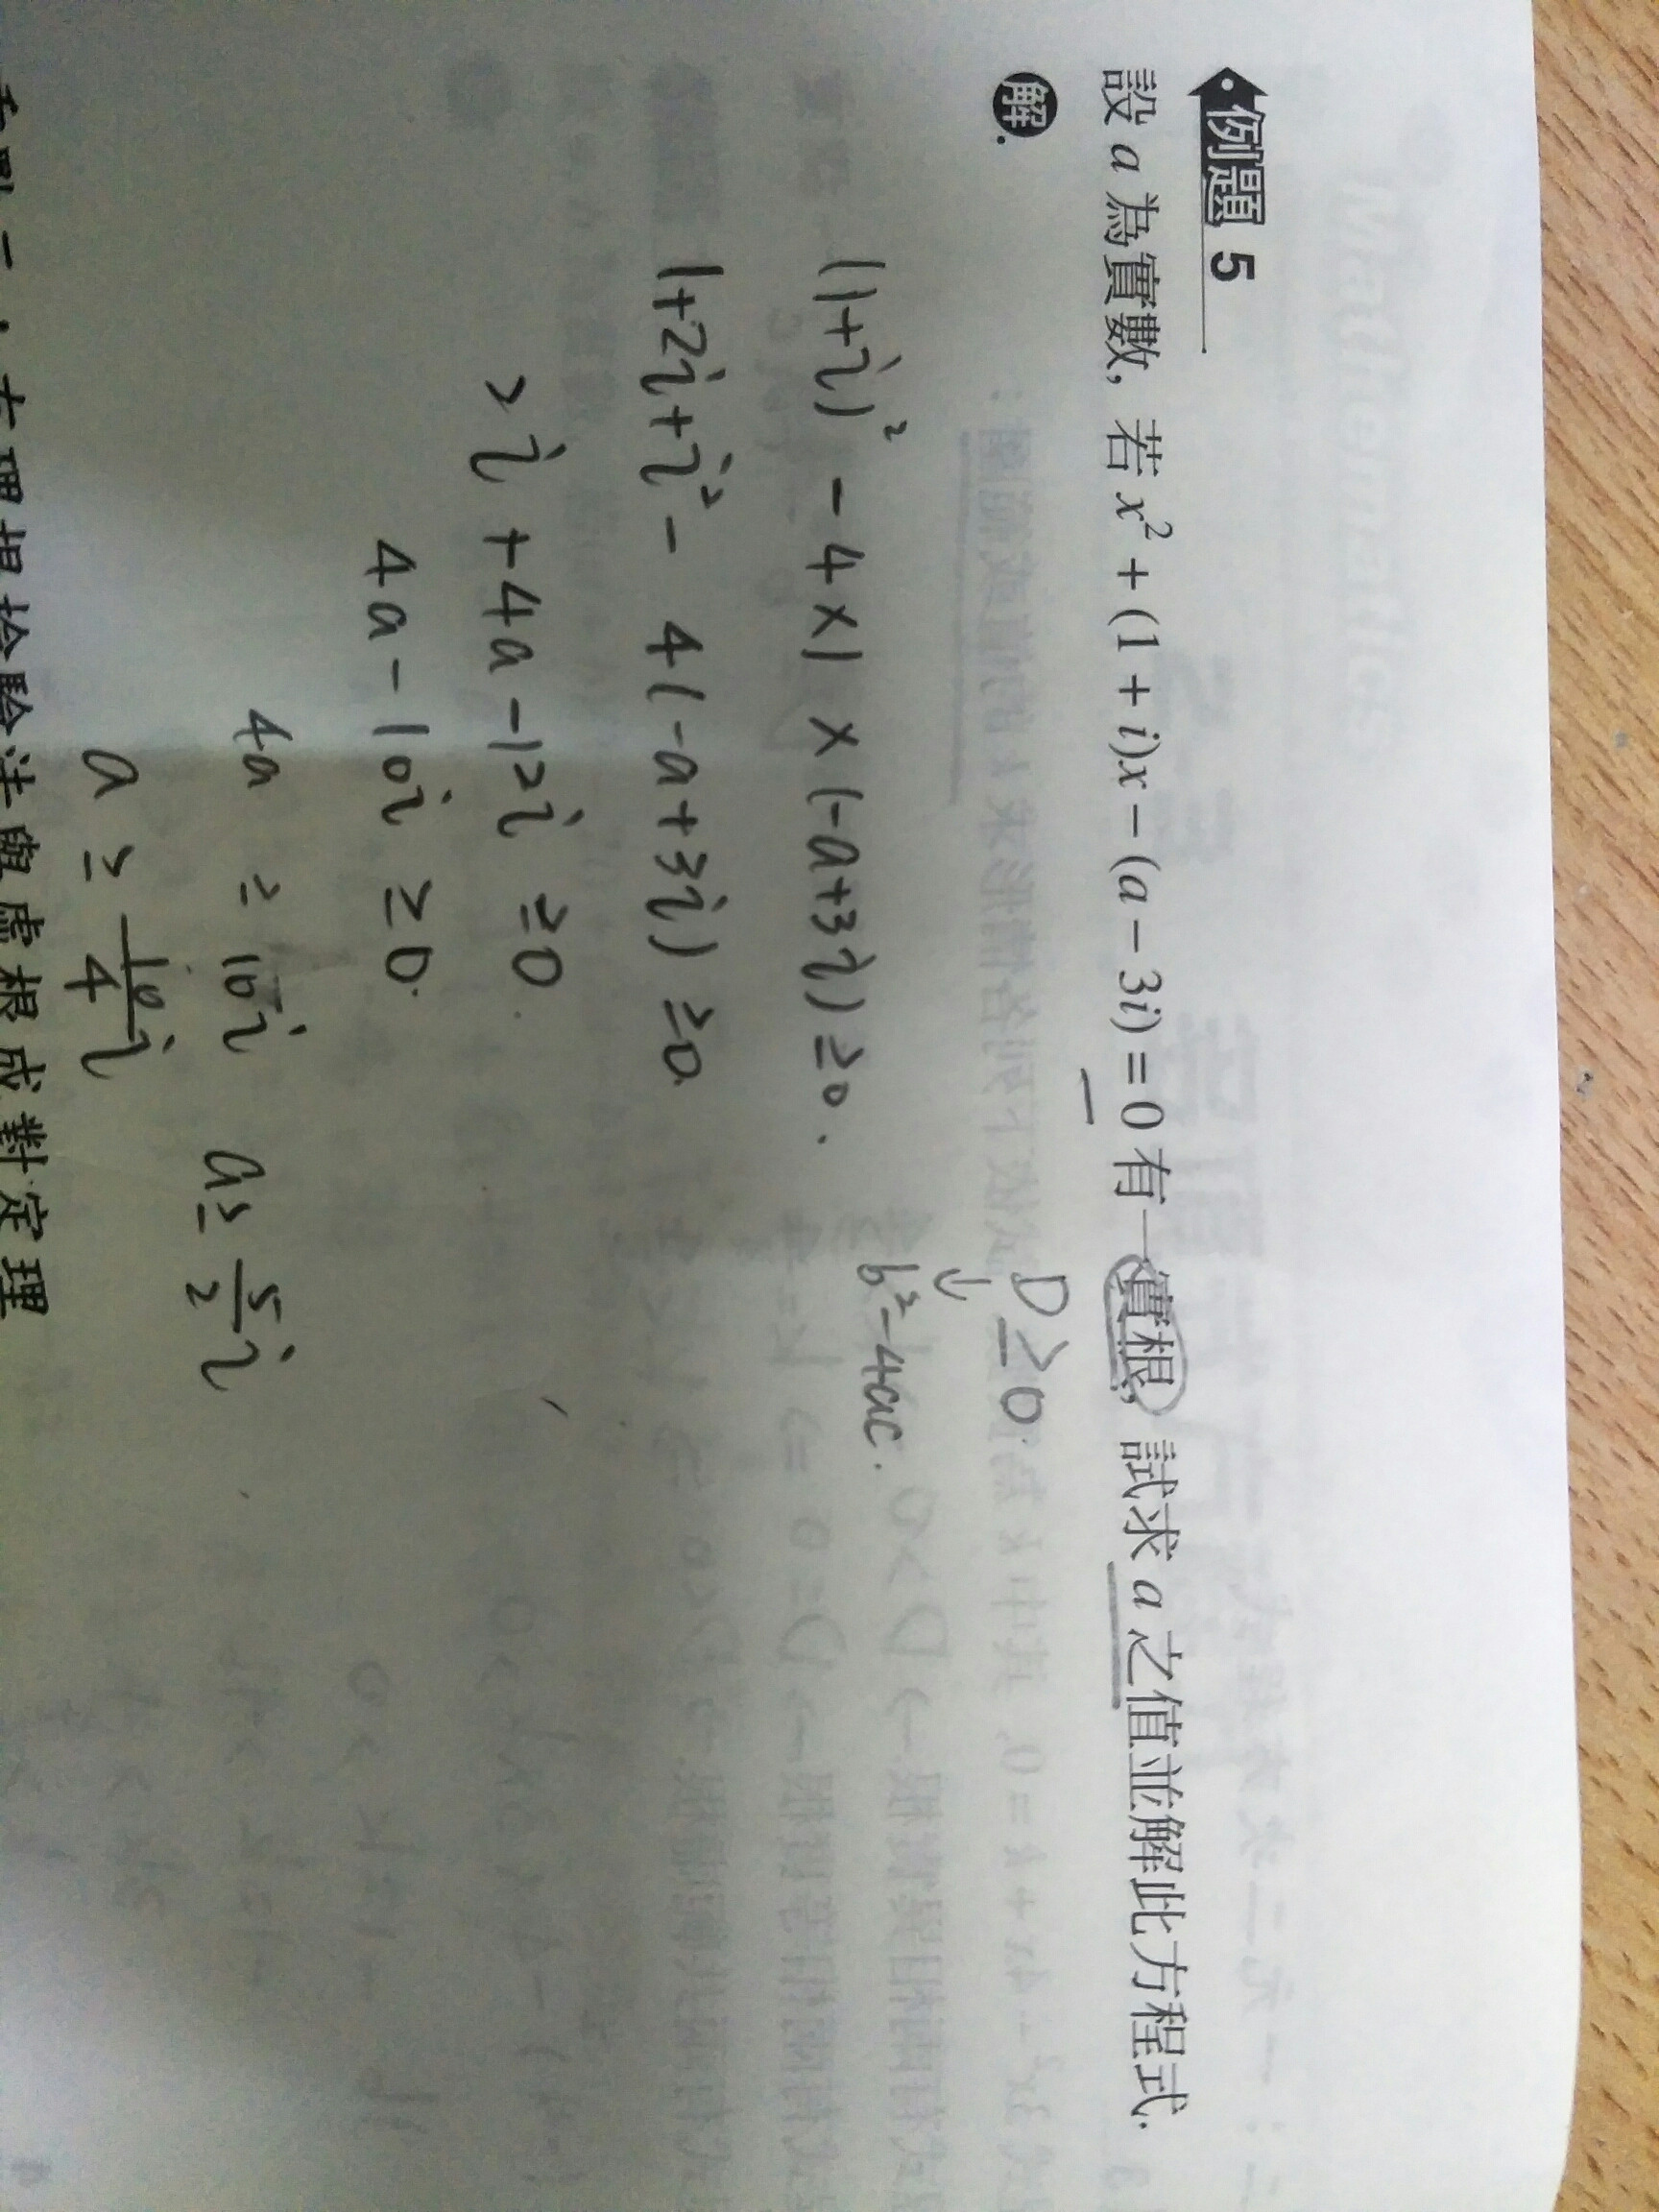 例題 5
設 a 為實數, 若 x² + (1 + i)x − (a − 3i) = 0 有一實根, 試求 a 之值並解此方程式.
解.
D ≥ 0
↓
b² − 4ac.
(1+i)² − 4×1×(−a+3i) ≥ 0.
1+2i+i² − 4(−a+3i) ≥ 0
2i + 4a − 12i ≥ 0
4a − 10i ≥ 0.
4a ≥ 10i
a ≥ 5/2 i
a ≥ 10/4 i
有理根檢驗法與虛根成對定理